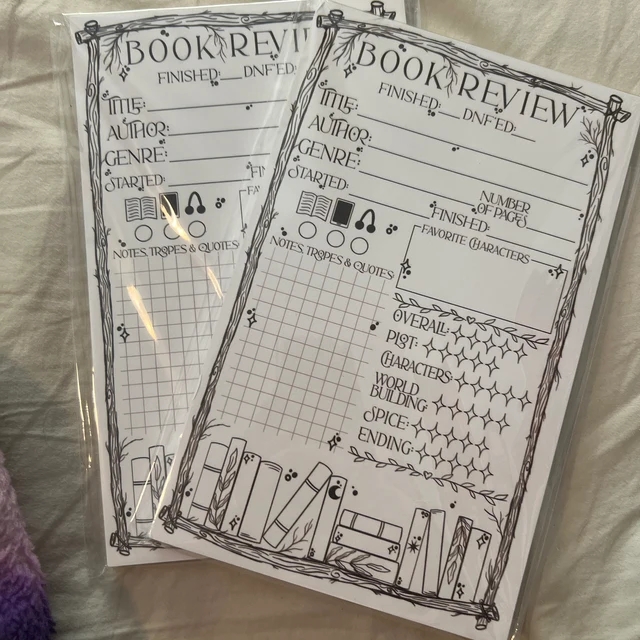 BOOK REVI
FINISHED:___ DNF'ED:
TITLE:
AUTHOR:
GENRE:
STARTED:
NOTES, TROPES & QUOTES
BOOK REVIEW
FINISHED:___ DNF'ED:___
TITLE:
AUTHOR:
GENRE:
NUMBER
OF PAGES
STARTED:
FINISHED:
FAVORITE CHARACTERS
NOTES, TROPES & QUOTES
OVERALL:
PLOT:
CHARACTERS:
WORLD
BUILDING:
SPICE:
ENDING: